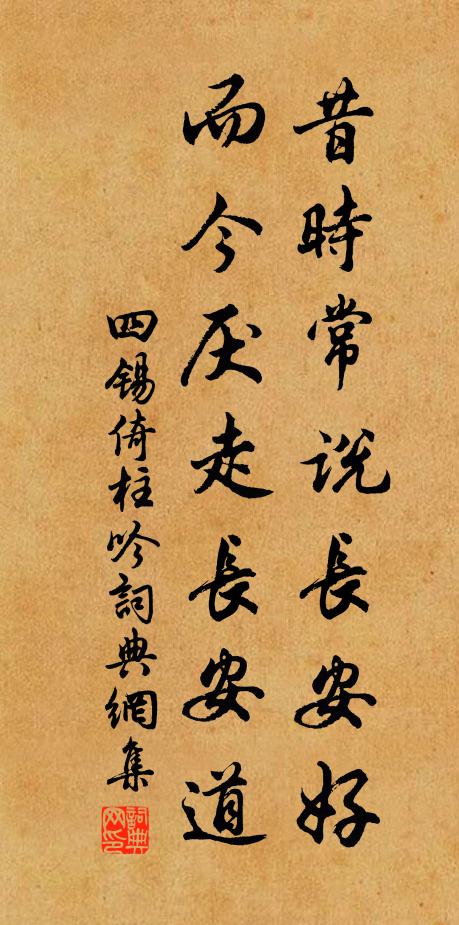 昔時常説長安好
而今厌走長安道
四锡倚柱吟詞典網集
詞典网印